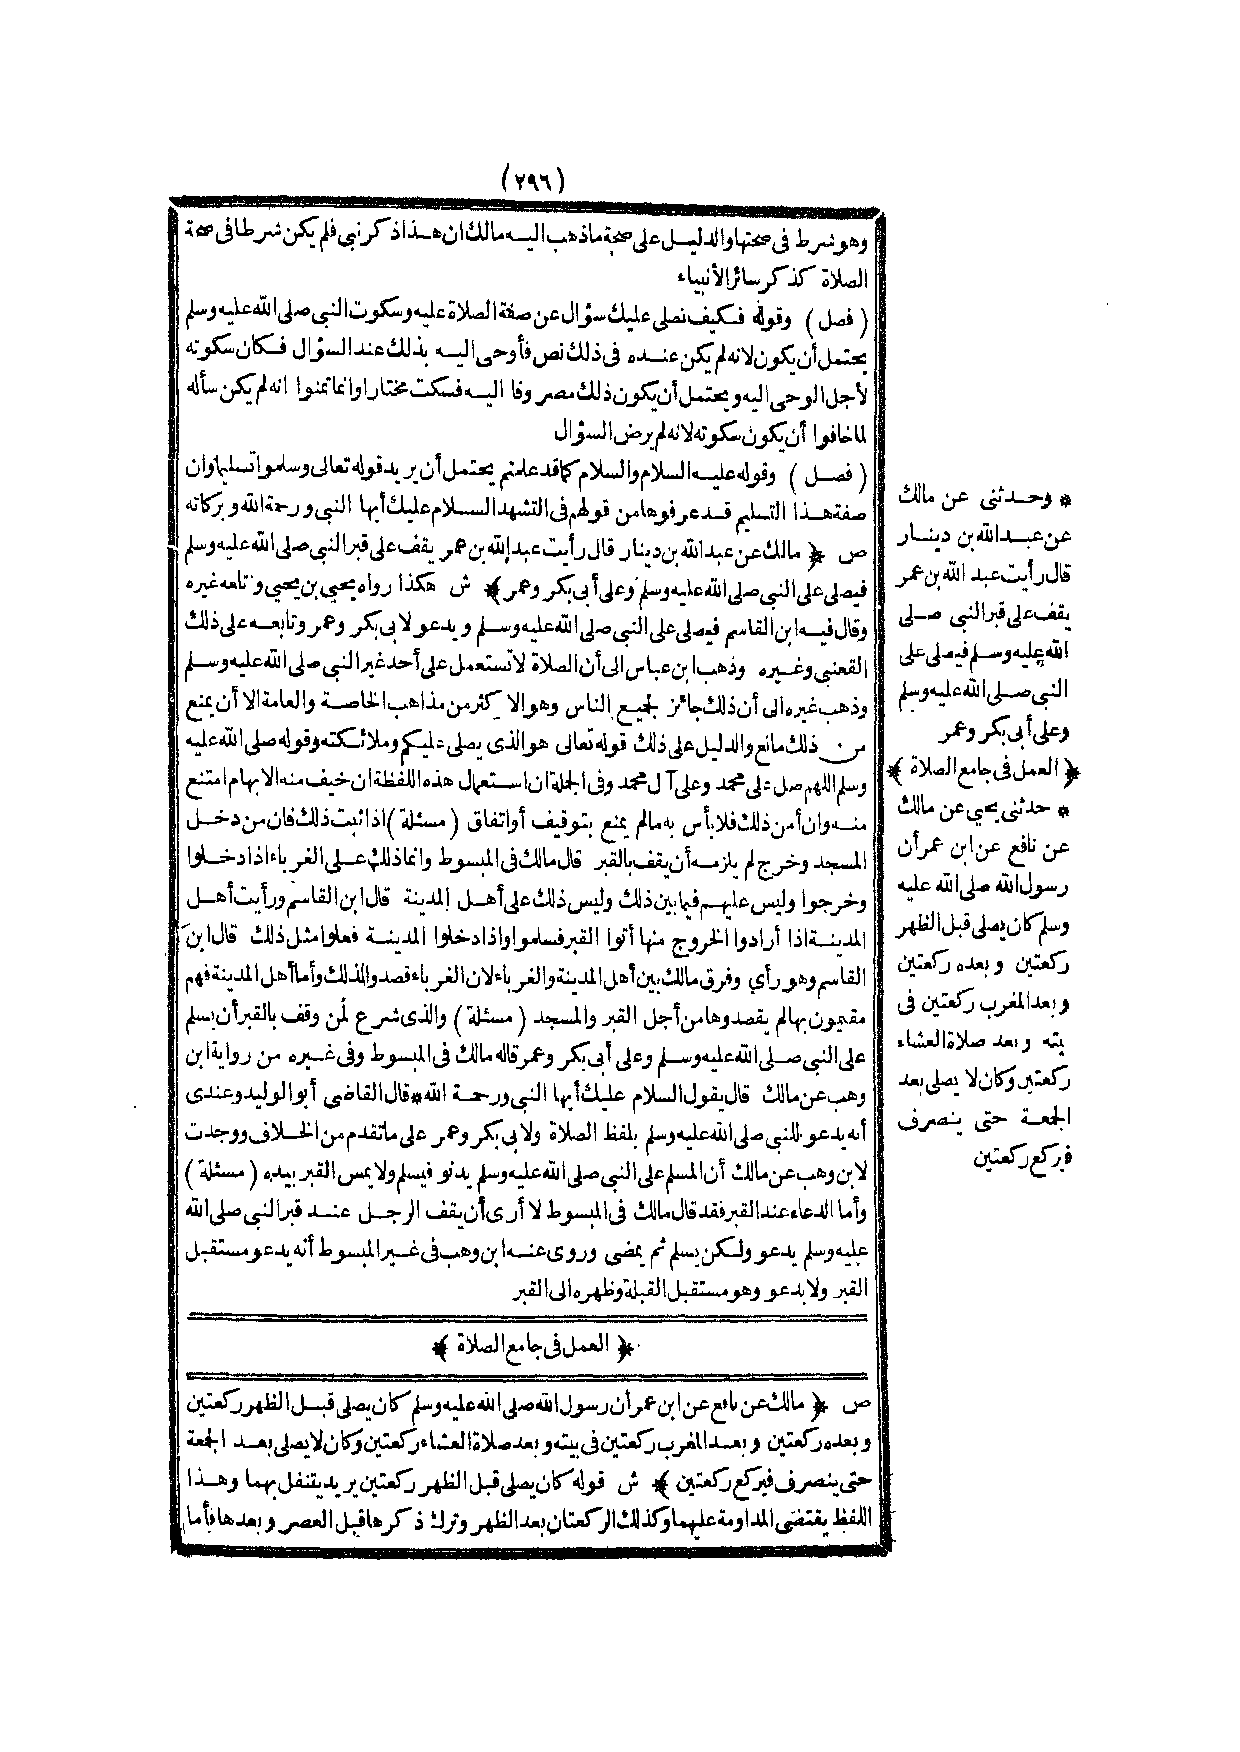 (٢٩٦)
وهو شرط فى صحتها والدليل على صحة ماذهب اليه مالك ان هذا ذكر نبي فلم يكن شرطا فى صحة
الصلاة كذكر سائر الأنبياء
(فصل) وقوله فكيف نصلى عليك سؤال عن صفة الصلاة عليه وسكوت النبي صلى الله عليه وسلم
يحتمل أن يكون لانه لم يكن عنده فى ذلك نص فأوحى اليه بذلك عند السؤال فكان سكوته
لأجل الوحى اليه ويحتمل أن يكون ذلك مصروفا اليه فسكت مختارا وانما تمنوا انه لم يكن سأله
لما خافوا أن يكون سكوته لانه لم يرض السؤال
(فصل) وقوله عليه السلام والسلام كما قد علمتم يحتمل أن يريد قوله تعالى وسلموا تسليما وان
صفة هذا التسليم قد عرفوها من قولهم فى التشهد السلام عليك أيها النبي ورحمة الله وبركاته
ص ﴿ مالك عن عبد الله بن دينار قال رأيت عبد الله بن عمر يقف على قبر النبي صلى الله عليه وسلم
فيصلى على النبي صلى الله عليه وسلم وعلى أبى بكر وعمر ﴾ ش هكذا رواه يحيى بن يحيى وتابعه غيره
وقال فيه ابن القاسم فيصلى على النبي صلى الله عليه وسلم ويدعو لابى بكر وعمر وتابعه على ذلك
القعنبى وغيره وذهب ابن عباس الى أن الصلاة لا تستعمل على أحد غير النبي صلى الله عليه وسلم
وذهب غيره الى أن ذلك جائز لجميع الناس وهو الاكثر من مذاهب الخاصة والعامة الا أن يمنع
من ذلك مانع والدليل على ذلك قوله تعالى هو الذى يصلى عليكم وملائكته وقوله صلى الله عليه
وسلم اللهم صل على محمد وعلى آل محمد وفى الجملة ان استعمال هذه اللفظة ان خيف منه الابهام امتنع
منه وان أمن ذلك فلا بأس به مالم يمنع بتوقيف أو اتفاق (مسئلة) اذا ثبت ذلك فان من دخل
المسجد وخرج لم يلزمه أن يقف بالقبر قال مالك فى المبسوط وانما ذلك على الغرباء اذا دخلوا
وخرجوا وليس عليهم فيما بين ذلك وليس ذلك على أهل المدينة قال ابن القاسم ورأيت أهل
المدينة اذا أرادوا الخروج منها أتوا القبر فسلموا واذا دخلوا المدينة فعلوا مثل ذلك قال ابن
القاسم وهو رأى وفرق مالك بين أهل المدينة والغرباء لان الغرباء قصدوا لذلك وأما أهل المدينة فهم
مقيمون بها لم يقصدوها من أجل القبر والمسجد (مسئلة) والذى شرع لمن وقف بالقبر أن يسلم
على النبي صلى الله عليه وسلم وعلى أبى بكر وعمر قاله مالك فى المبسوط وفى غيره من رواية ابن
وهب عن مالك قال يقول السلام عليك أيها النبي ورحمة الله * قال القاضى أبو الوليد وعندى
أنه يدعو للنبي صلى الله عليه وسلم بلفظ الصلاة ولابى بكر وعمر على ما تقدم من الخلاف ووجدت
لابن وهب عن مالك أن المسلم على النبي صلى الله عليه وسلم يدنو فيسلم ولا يمس القبر بيده (مسئلة)
وأما الدعاء عند القبر فقد قال مالك فى المبسوط لا أرى أن يقف الرجل عند قبر النبي صلى الله
عليه وسلم يدعو ولكن يسلم ثم يمضى وروى عنه ابن وهب فى غير المبسوط أنه يدعو مستقبل
القبر ولا يدعو وهو مستقبل القبلة وظهره الى القبر
﴿ العمل فى جامع الصلاة ﴾
ص ﴿ مالك عن نافع عن ابن عمر أن رسول الله صلى الله عليه وسلم كان يصلى قبل الظهر ركعتين
وبعده ركعتين وبعد المغرب ركعتين فى بيته وبعد صلاة العشاء ركعتين وكان لا يصلى بعد الجمعة
حتى ينصرف فيركع ركعتين ﴾ ش قوله كان يصلى قبل الظهر ركعتين يريد يتنفل بهما وهذا
اللفظ يقتضى المداومة عليهما وكذلك الركعتان بعد الظهر وترك ذكرها قبل العصر وبعدها فأما
* وحدثنى عن مالك
عن عبد الله بن دينار
قال رأيت عبد الله بن عمر
يقف على قبر النبي صلى
الله عليه وسلم فيصلى على
النبي صلى الله عليه وسلم
وعلى أبى بكر وعمر
﴿ العمل فى جامع الصلاة ﴾
* حدثنى يحيى عن مالك
عن نافع عن ابن عمر أن
رسول الله صلى الله عليه
وسلم كان يصلى قبل الظهر
ركعتين وبعده ركعتين
وبعد المغرب ركعتين فى
بيته وبعد صلاة العشاء
ركعتين وكان لا يصلى بعد
الجمعة حتى ينصرف
فيركع ركعتين